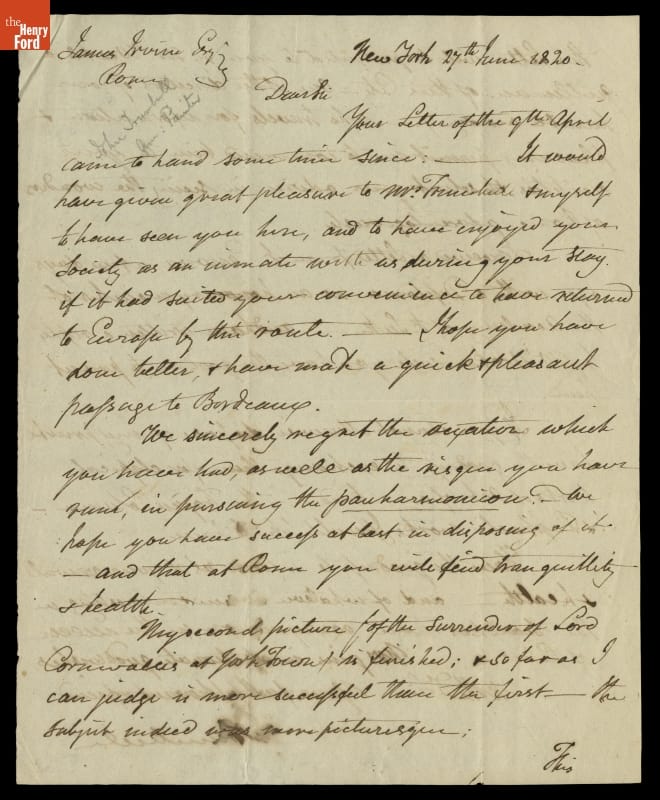 the
Henry
Ford
James Irvine Esqr
Rome
New York 27th June 1820.
John Trumbull
Am. Painter
Dear Sir
Your Letter of the 9th April
came to hand some time since: — It would
have given great pleasure to Mrs Trumbull & myself
to have seen you here, and to have enjoyed your
Society as an inmate with us during your stay.
if it had suited your convenience to have returned
to Europe by this route. — I hope you have
done better, & have made a quick & pleasant
passage to Bordeaux.
We sincerely regret the vexation which
you have had, as well as the risque you have
run, in pursuing the panharmonicon. — We
hope you have success at last in disposing of it.
— and that at Rome you will find tranquillity
& health.
My second picture (of the Surrender of Lord
Cornwallis at York Town) is finished; & so far as I
can judge is more successful than the first — the
subject indeed was more picturesque;
This